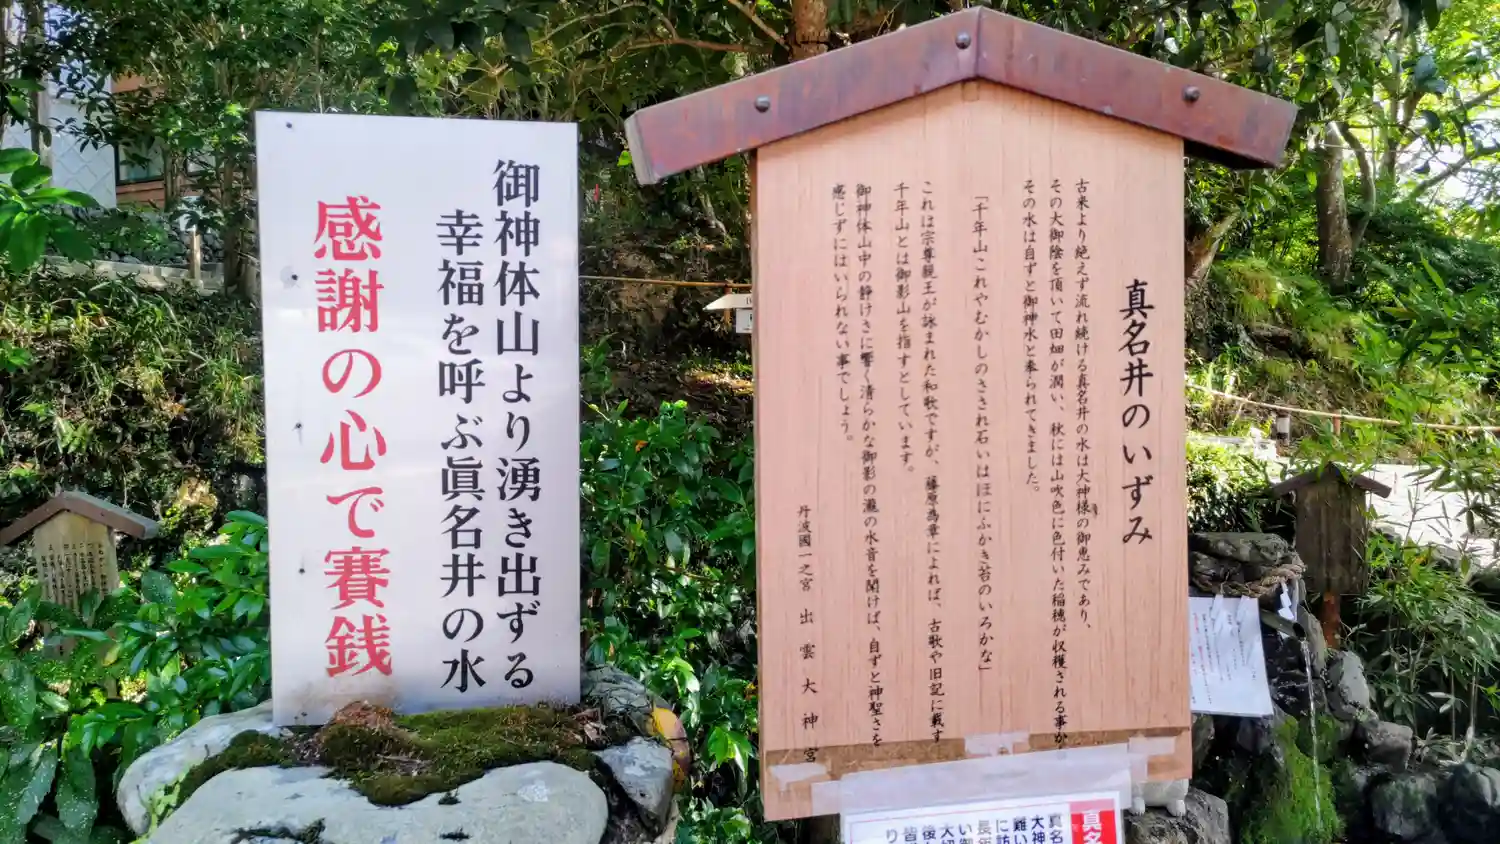 御神体山より湧き出ずる
幸福を呼ぶ眞名井の水
感謝の心で賽銭
真名井のいずみ
古来より絶えず流れ続ける真名井の水は大神様の御恵みであり、
その大御陰を頂いて田畑が潤い、秋には山吹色に色付いた稲穂が収穫される事から
その水は自ずと御神水と奉られてきました。
「千年山これやむかしのさされ石いはほにふかき苔のいろかな」
これは宗尊親王が詠まれた和歌ですが、藤原為章によれば、古歌や旧記に載す
千年山とは御影山を指すとしています。
御神体山中の静けさに響く清らかな御影の瀧の水音を聞けば、自ずと神聖さを
感じずにはいられない事でしょう。
丹波國一之宮 出雲大神宮
真名